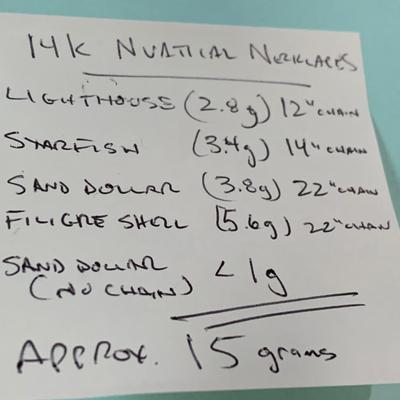 14K NUATICAL NECKLACES
LIGHTHOUSE (2.8g) 12" CHAIN
STARFISH (3.4g) 14" CHAIN
SAND DOLLAR (3.8g) 22" CHAIN
FILIGRE SHELL (5.6g) 22" CHAIN
SAND DOLLAR < 1g
(NO CHAIN)
APPROX. 15 grams